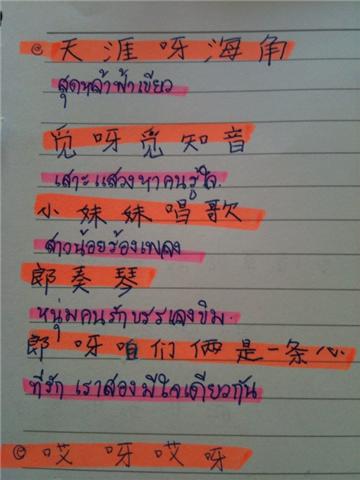 @ 天涯呀海角
สุดหล้าฟ้าเขียว
觅呀觅知音
เสาะแสวงหาคนรู้ใจ.
小妹妹唱歌
สาวน้อยร้องเพลง
郎奏琴
หนุ่มคนรักบรรเลงขิม.
郎呀咱们俩是一条心
ที่รัก เราสองมีใจเดียวกัน
@ 哎呀哎呀